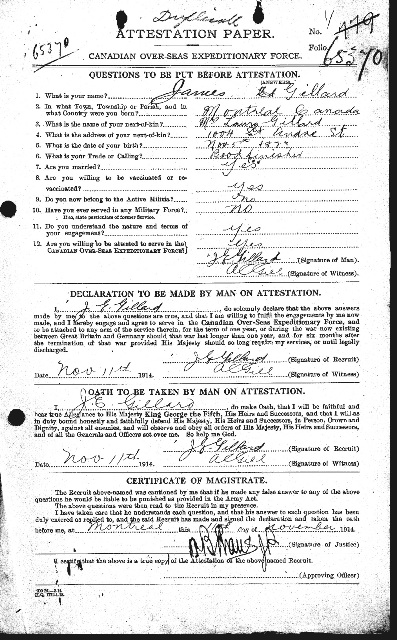 Duplicate
ATTESTATION PAPER.
No.
Folio.
65370
CANADIAN OVER-SEAS EXPEDITIONARY FORCE.
QUESTIONS TO BE PUT BEFORE ATTESTATION.
(ANSWERS)
1. What is your name? James Ed Gillard
2. In what Town, Township or Parish, and in what Country were you born? Montreal Canada
3. What is the name of your next-of-kin? Mrs Gillard
4. What is the address of your next-of-kin? 1004 St Andre St
5. What is the date of your birth? Nov
6. What is your Trade or Calling?
7. Are you married? Yes
8. Are you willing to be vaccinated or re-vaccinated? Yes
9. Do you now belong to the Active Militia? No
10. Have you ever served in any Military Force? No
If so, state particulars of former Service.
11. Do you understand the nature and terms of your engagement? Yes
12. Are you willing to be attested to serve in the CANADIAN OVER-SEAS EXPEDITIONARY FORCE? Yes
J E Gillard (Signature of Man).
(Signature of Witness).
DECLARATION TO BE MADE BY MAN ON ATTESTATION.
I, J. E. Gillard, do solemnly declare that the above answers
made by me to the above questions are true, and that I am willing to fulfil the engagements by me now
made, and I hereby engage and agree to serve in the Canadian Over-Seas Expeditionary Force, and
to be attached to any arm of the service therein, for the term of one year, or during the war now existing
between Great Britain and Germany should that war last longer than one year, and for six months after
the termination of that war provided His Majesty should so long require my services, or until legally
discharged.
J E Gillard (Signature of Recruit)
Date Nov 11th 1914. (Signature of Witness)
OATH TO BE TAKEN BY MAN ON ATTESTATION.
I, J E Gillard, do make Oath, that I will be faithful and
bear true Allegiance to His Majesty King George the Fifth, His Heirs and Successors, and that I will as
in duty bound honestly and faithfully defend His Majesty, His Heirs and Successors, in Person, Crown and
Dignity, against all enemies, and will observe and obey all orders of His Majesty, His Heirs and Successors,
and of all the Generals and Officers set over me. So help me God.
J E Gillard (Signature of Recruit)
Date Nov 11th 1914. (Signature of Witness)
CERTIFICATE OF MAGISTRATE.
The Recruit above-named was cautioned by me that if he made any false answer to any of the above
questions he would be liable to be punished as provided in the Army Act.
The above questions were then read to the Recruit in my presence.
I have taken care that he understands each question, and that his answer to each question has been
duly entered as replied to, and the said Recruit has made and signed the declaration and taken the oath
before me, at Montreal this day of November 1914.
(Signature of Justice)
I certify that the above is a true copy of the Attestation of the above-named Recruit.
(Approving Officer)